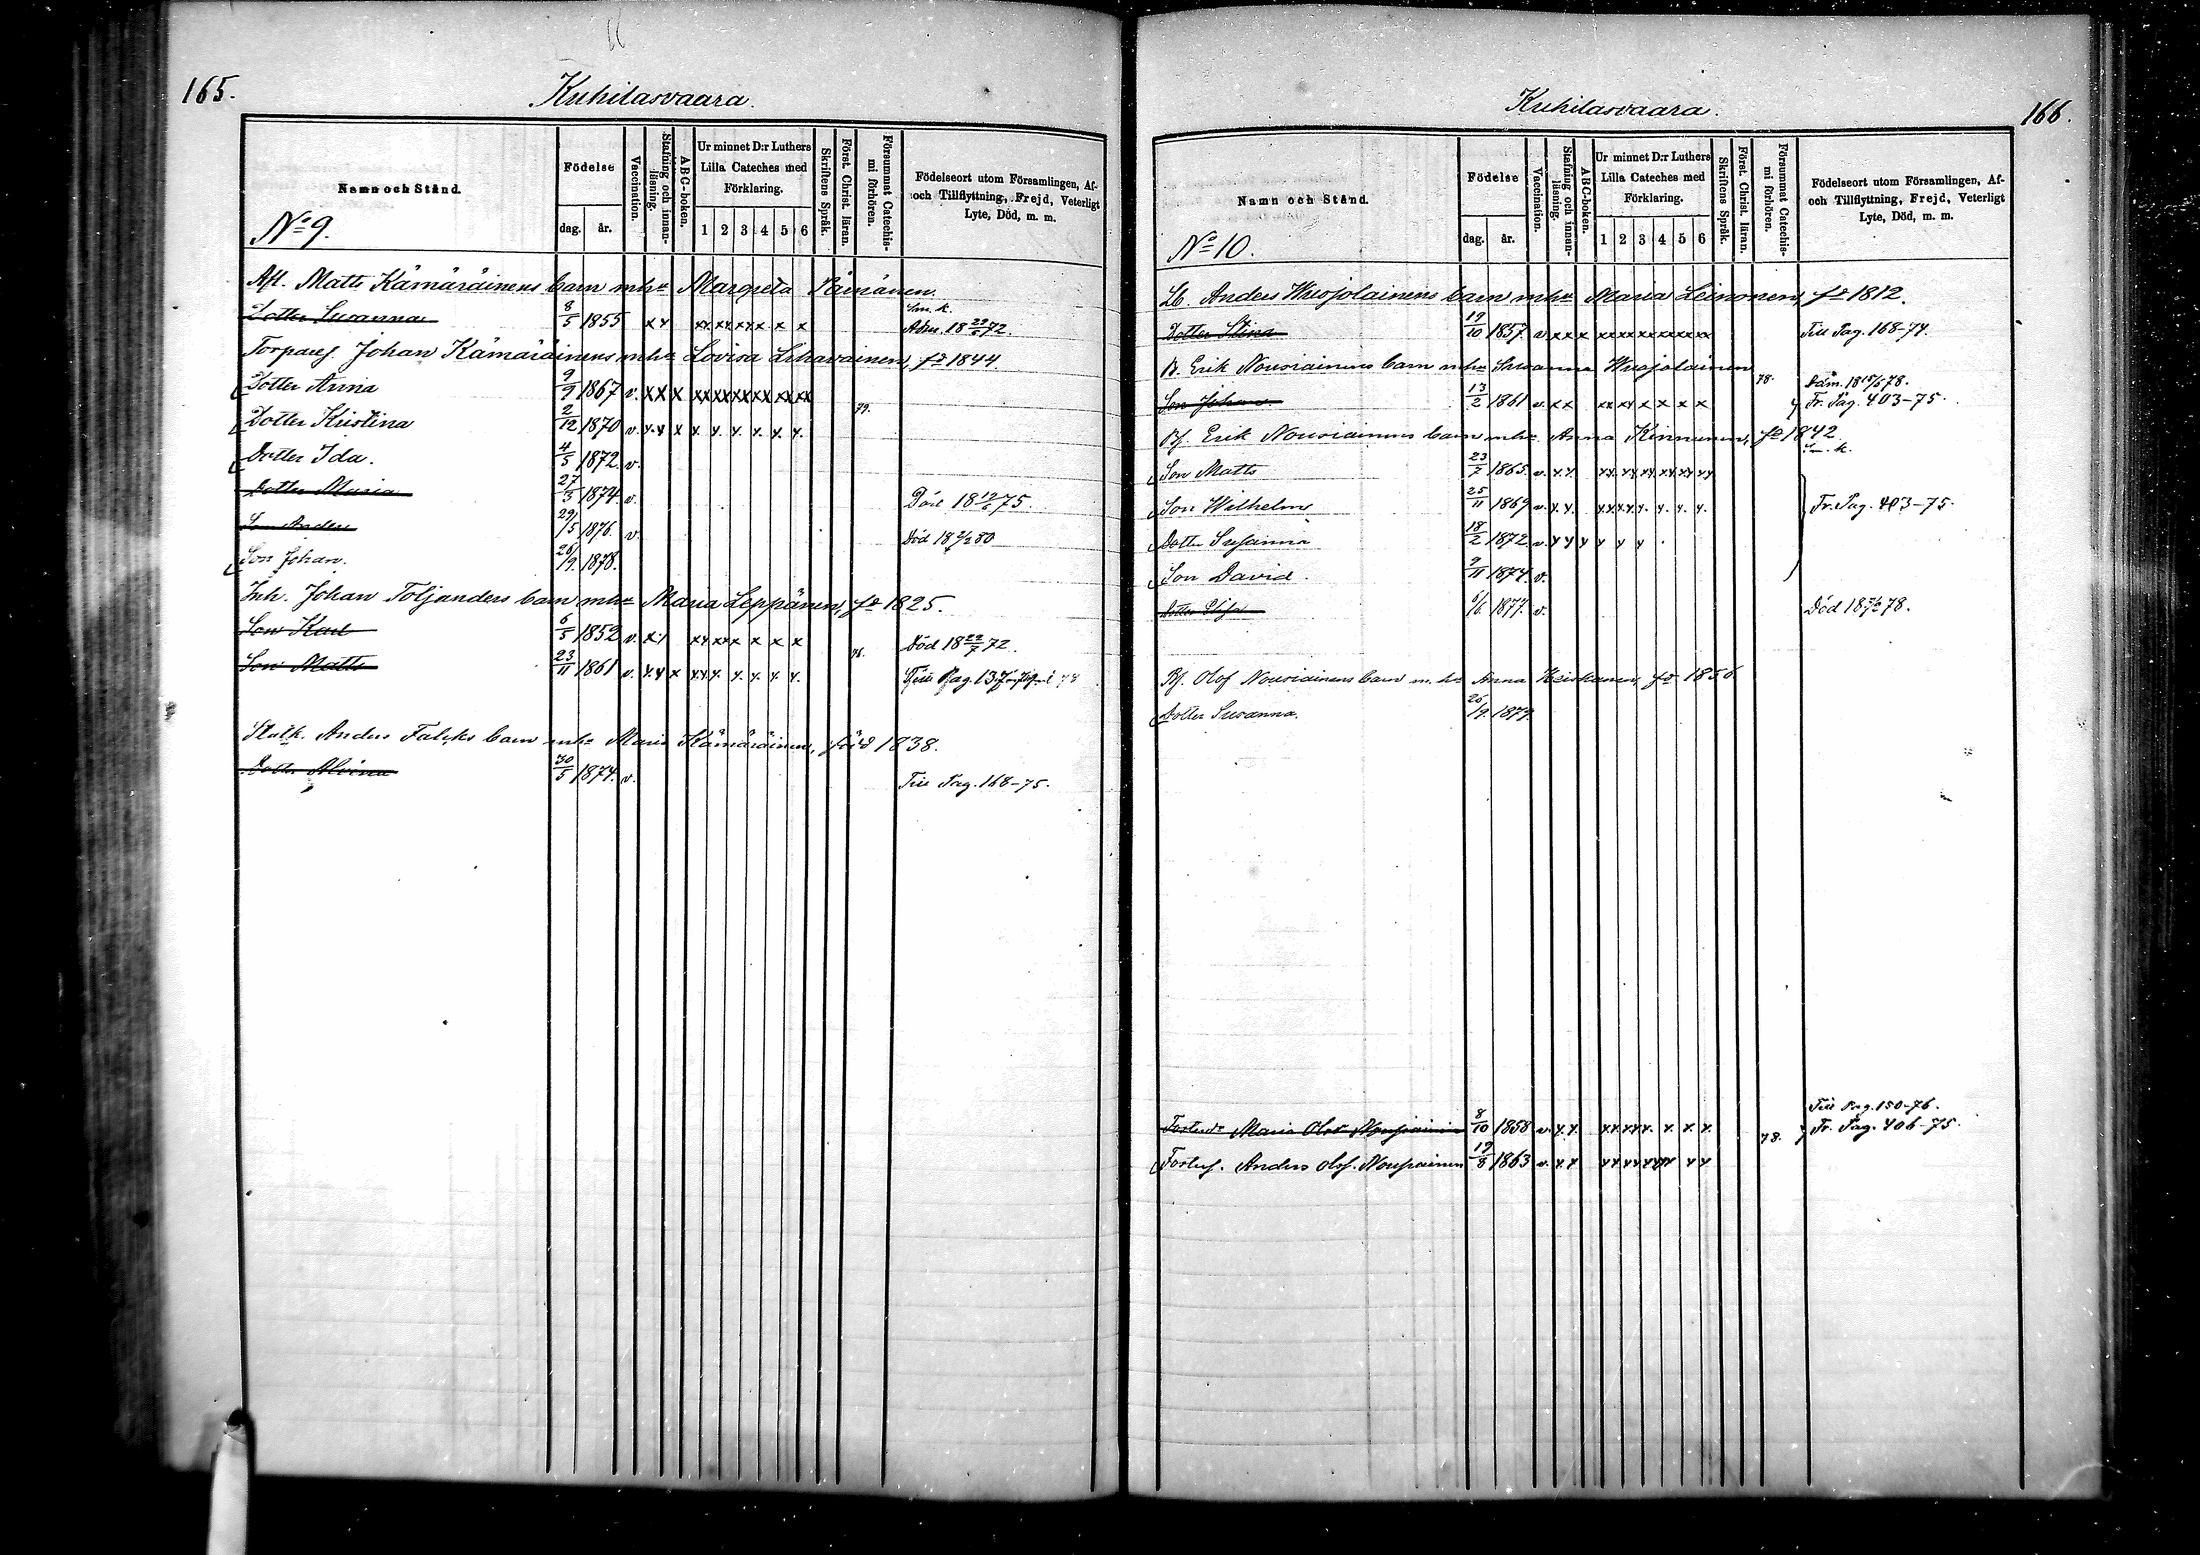 165.
Kuhilasvaara.
Namn och Stånd.
Födelse
dag. år.
Vaccination.
Stafning och innanläsning.
ABC-boken.
Ur minnet D:r Luthers Lilla Cateches med Förklaring.
1 2 3 4 5 6
Skriftens Språk.
Först. Christ. läran.
Försummat Catechismi förhören.
Födelseort utom Församlingen, Af- och Tillflyttning, Frejd, Veterligt Lyte, Död, m. m.
No 9.
Afl. Matts Kämäräinens barn mhu Margreta
Dotter Susanna 8/5 1855 x x xx xx xx x x x
Torpares. Johan Kämäräinens mhu Lovisa fd 1844.
Dotter Anna 9/9 1867 v. x x x xx xx xx xx xx xx
Dotter Kristina 2/12 1870 v. x x x x. x. x. x. x. x. 79.
Dotter Ida. 4/5 1872 v.
Dotter Maria 27/3 1874 v. Död 18 75.
Son Anders 29/5 1876. v. Död 18 80
Son Johan. 26/9. 1878.
Inh. Johan Toljanders barn mhu Maria Leppänen, fd 1825.
Son Karl 6/5 1852 v. x x xx xx x x x x Död 18 22/7 72.
Son Matts 23/11 1861 v. x. x x x x x. x. x. x. x. Till Pag. 137
Anders Falcks barn mhu Maria Kämäräinen, född 1838.
Dotter Alvina 30/5 1874. v. Till Pag. 168-75.
166.
Kuhilasvaara.
Namn och Stånd.
Födelse
dag. år.
Vaccination.
Stafning och innanläsning.
ABC-boken.
Ur minnet D:r Luthers Lilla Cateches med Förklaring.
1 2 3 4 5 6
Skriftens Språk.
Först. Christ. läran.
Försummat Catechismi förhören.
Födelseort utom Församlingen, Af- och Tillflyttning, Frejd, Veterligt Lyte, Död, m. m.
No 10.
Anders Wuojolainens barn mhu Maria Leinonen, fd 1812.
Dotter Stina 19/10 1857 v. x x x xx xx xx xx xx xx Till Pag. 168-74.
B. Erik Nousiainens barn mhu Susanna Wuojolainen
78.
Son Johan 13/2 1861 v. x x xx xx x x x x Fr. Pag. 403-75.
Bf. Erik Nousiainens barn mhu Anna Kinnunen, fd 1842
Son Matts 23/2 1865. v. x x. xx. xx xx xx xx xx
Son Wilhelm 25/11 1869 v. x. x. x x x x. x. x. x. Fr. Pag. 403-75.
Dotter Susanna 18/2 1872 v. x x x x x x
Son David. 9/11 1874. v.
Dotter Elisa 1877. v. Död 18 78.
Bf. Olof Nousiainens barn m. hu Anna Heiskanen, fd 1856
Dotter Susanna. 26/9. 1879.
Till Pag. 150-76.
Maria Olofsdr Nousiainen 8/10 1858 v. x x. xx xx x x x 78. Fr. Pag. 406-75.
Fosters. Anders Olofs. Nousiainen 19/8 1863 v. x x x x x x x x x x